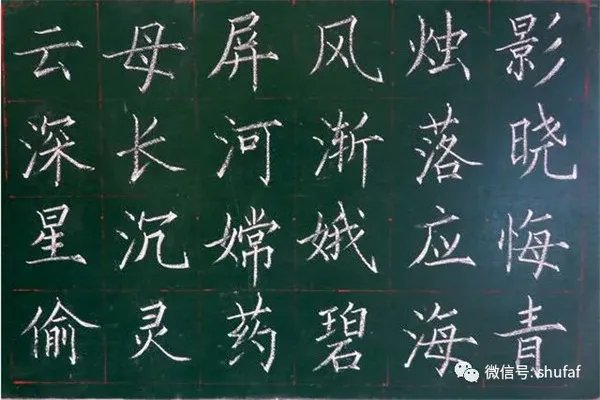 云母屏风烛影
深长河渐落晓
星沉嫦娥应悔
偷灵药碧海青
微信号: shufaf